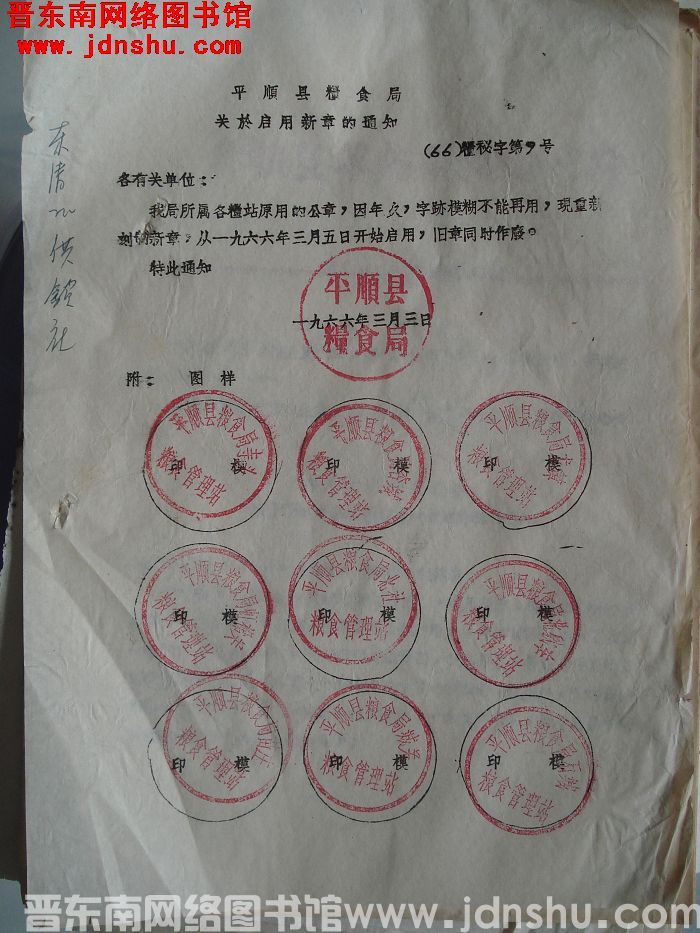 晋东南网络图书馆
www.jdnshu.com
平順县糧食局
关於启用新章的通知
(66)糧秘字第9号
各有关单位：
我局所属各糧站原用的公章，因年久，字跡模糊不能再用，现重新
刻制新章，从一九六六年三月五日开始启用，旧章同时作廢。
特此通知
平順县
糧食局
一九六六年三月三日
附：图样
平順县粮食局
粮食管理站
印模
平順县粮食局
粮食管理站
印模
平順县粮食局
粮食管理站
印模
平順县粮食局
粮食管理站
印模
平順县粮食局北社
粮食管理站
印模
平順县粮食局
粮食管理站
印模
平順县粮食局
粮食管理站
印模
平順县粮食局
粮食管理站
印模
平順县粮食局石
粮食管理站
印模
供銷社
晋东南网络图书馆www.jdnshu.com